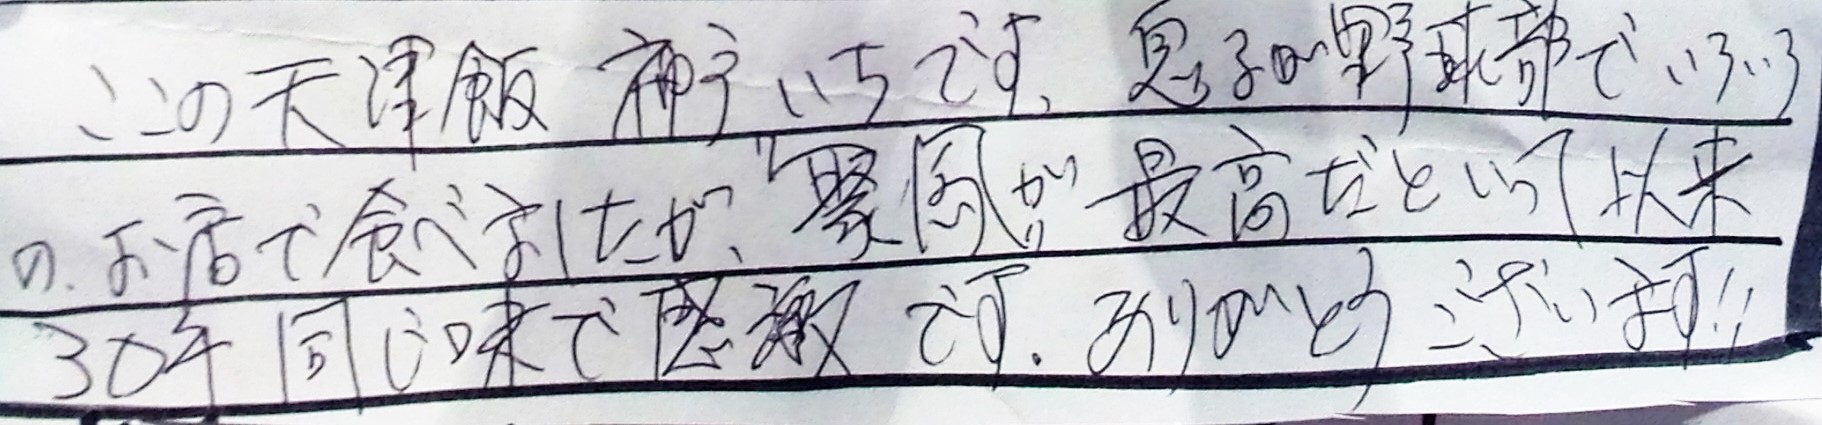 ここの天津飯 神戸いちです、息子が野球部でいろいろ
の、お店で食べましたが、聚園が最高だといって以来
30年同じ味で感謝です。ありがとうございます!!